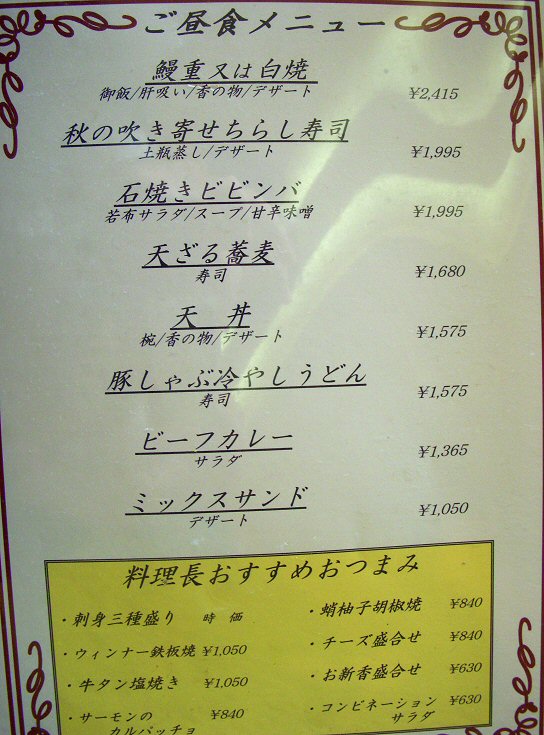 ご昼食メニュー
鰻重又は白焼
御飯/肝吸い/香の物/デザート ¥2,415
秋の吹き寄せちらし寿司
土瓶蒸し/デザート ¥1,995
石焼きビビンバ
若布サラダ/スープ/甘辛味噌 ¥1,995
天ざる蕎麦
寿司 ¥1,680
天 丼
椀/香の物/デザート ¥1,575
豚しゃぶ冷やしうどん
寿司 ¥1,575
ビーフカレー
サラダ ¥1,365
ミックスサンド
デザート ¥1,050
料理長おすすめおつまみ
・刺身三種盛り 時 価
・ウィンナー鉄板焼 ¥1,050
・牛タン塩焼き ¥1,050
・サーモンの ¥840
カルパッチョ
・蛸柚子胡椒焼 ¥840
・チーズ盛合せ ¥840
・お新香盛合せ ¥630
・コンビネーション ¥630
サラダ